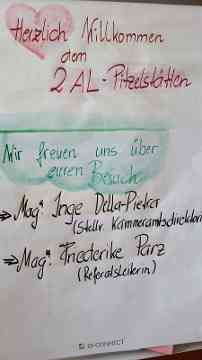 Herzlich Willkommen
dem
2 AL - Pitzelstätten
Wir freuen uns über
euren Besuch
⇒ Magª. Inge Della-Pietra
(Stellv. Kammeramtsdirektorin)
⇒ Magª. Friederike Parz
(Referatsleiterin)
e-connect